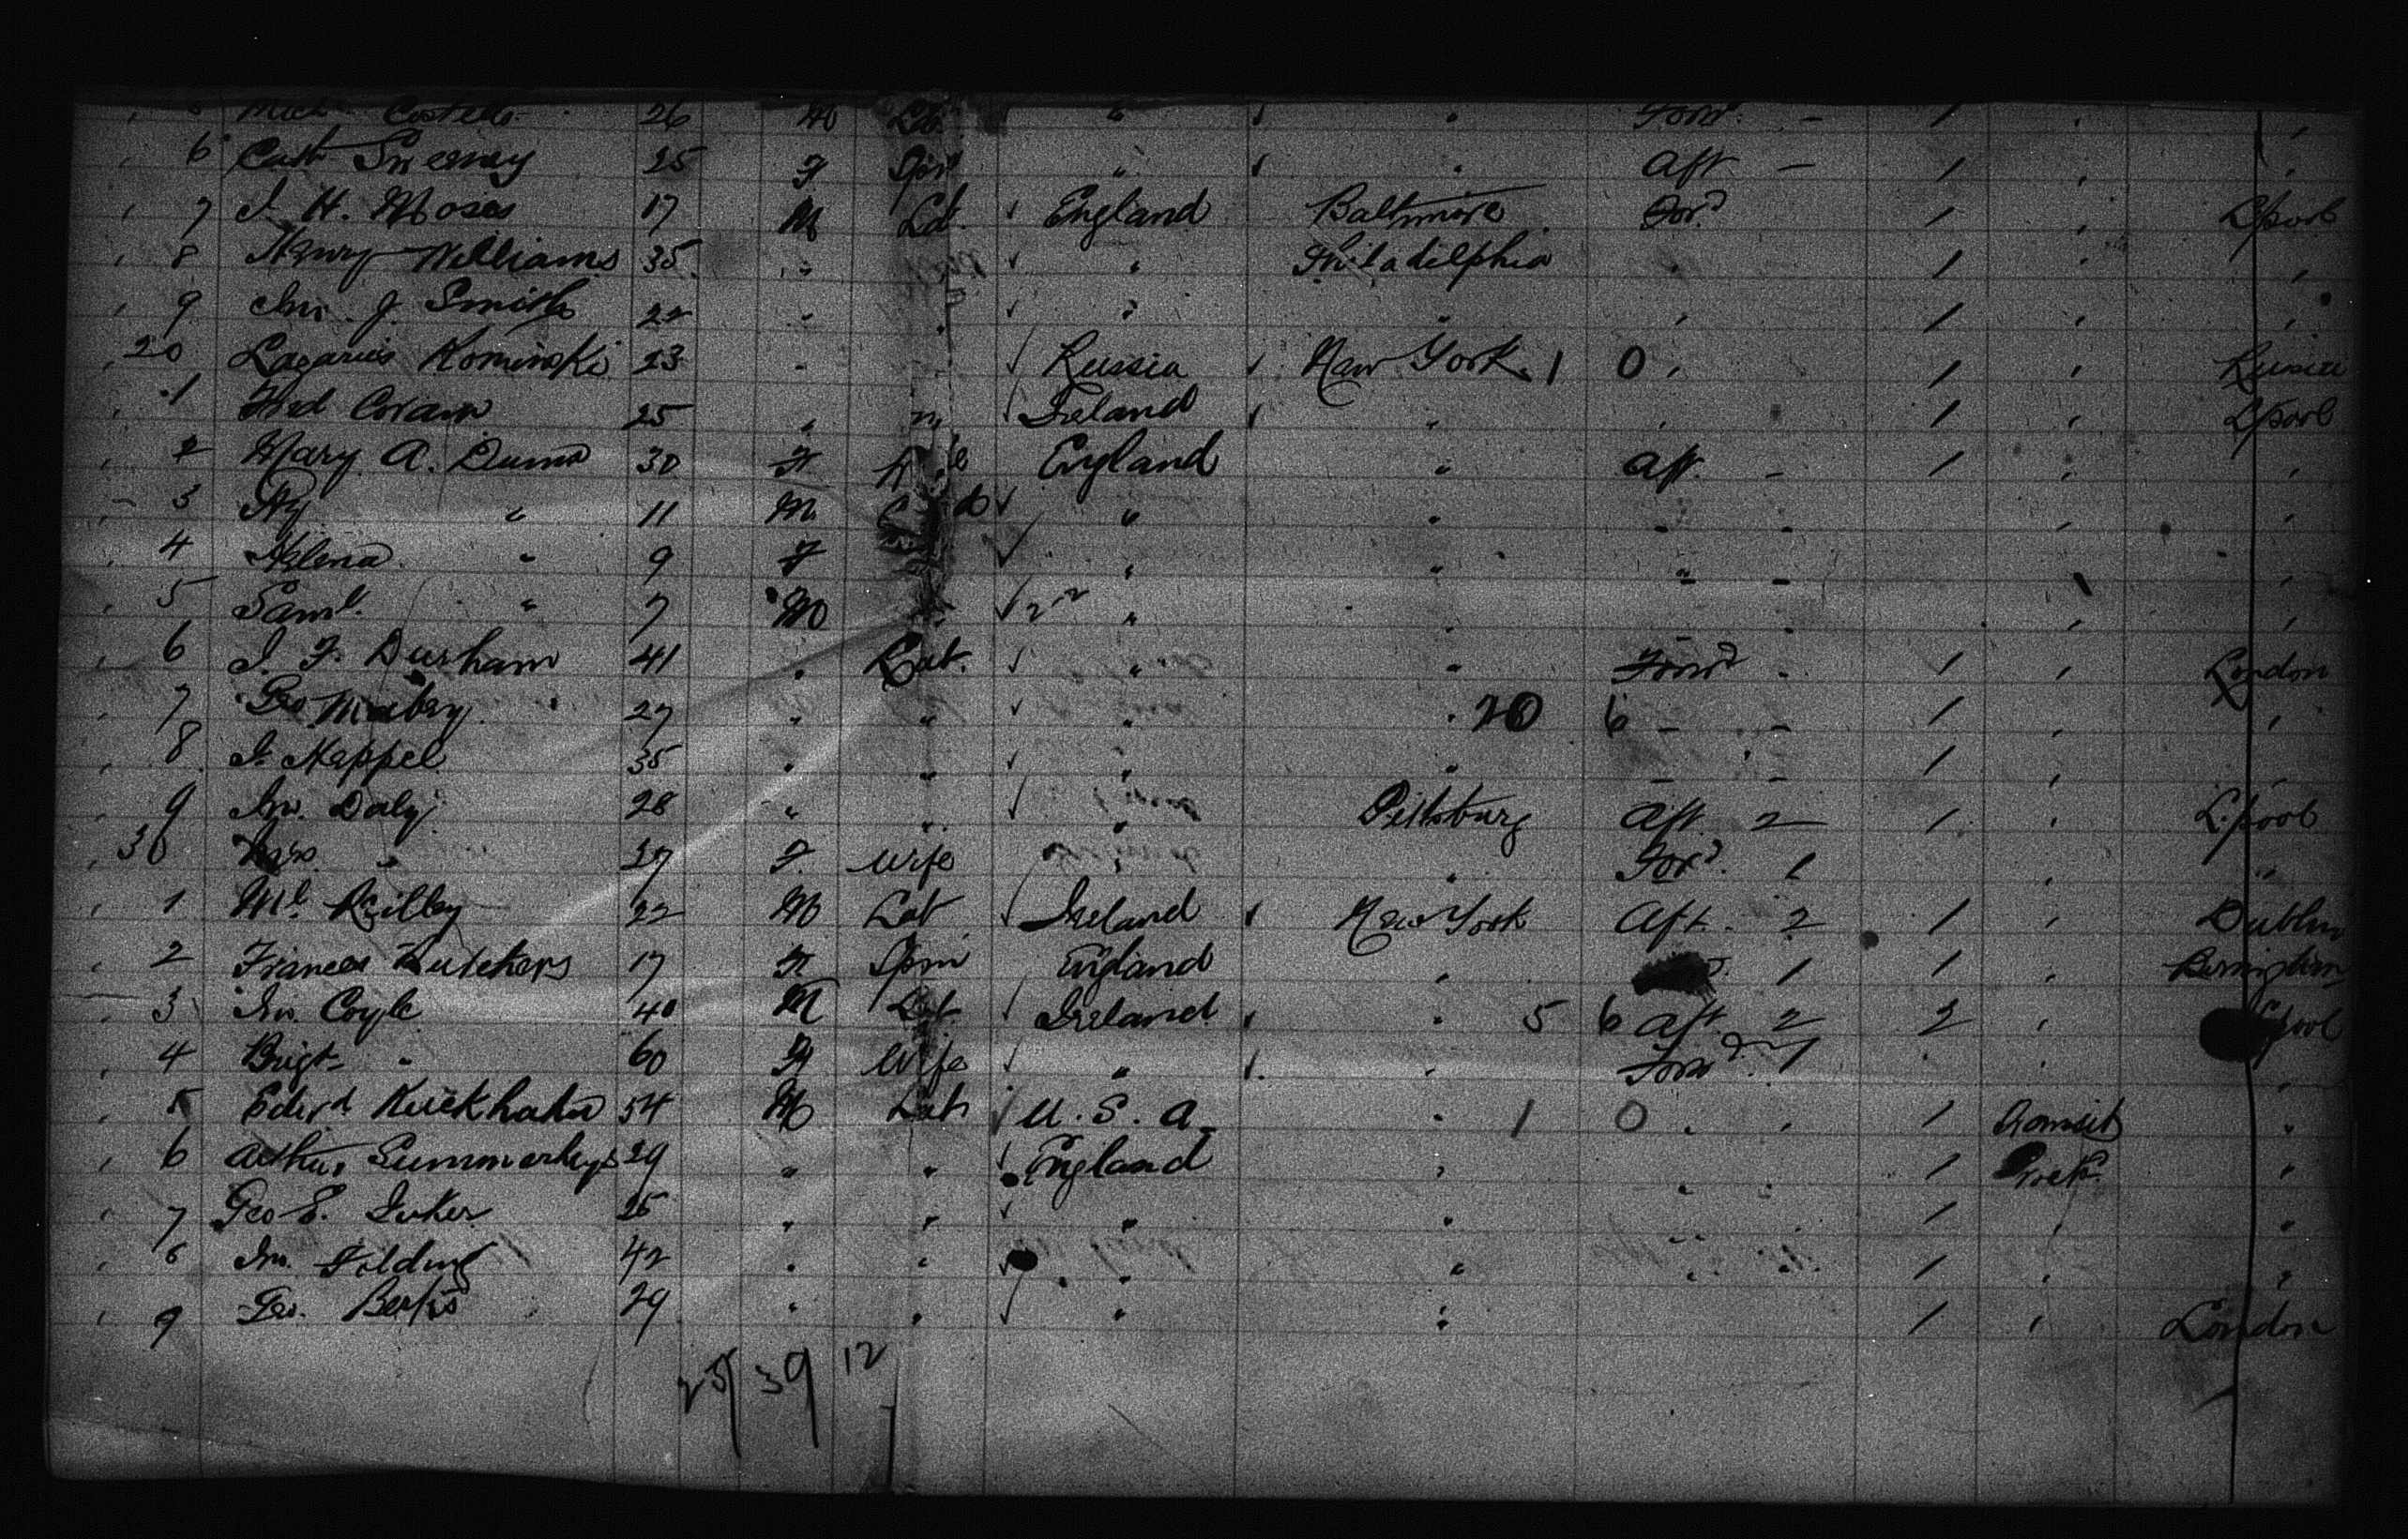 Costello 26 M Lab " " Forwd - 1
6 Cath Sweeney 25 F Spin " " Aft - 1
7 J. H. Moses 17 M Lab. England Baltimore Ford 1 L'pool
8 Henry Williams 35 " " Philadelphia 1 "
9 Jno. J. Smith 22 " " " " 1 "
20 Lazarius Kominski 23 " Russia New York 1 0 " 1 " Russia
1 Fred Coram 25 " " Ireland " " 1 " L'pool
2 Mary A. Dunn 30 F England " Aft. - 1 " "
3 Hy " 11 M " " " - " "
4 Helena " 9 F " " " - "
5 Saml. " 7 M " " - " "
6 J. F. Durham 41 " Lab. " " Forwd - 1 " London
7 Geo Mabey 27 " " " " 20 6 - - 1 " "
8 J. Kappel 35 " " " " - - 1 " "
9 Jno. Daly 28 " " " Pittsburg Aft. 2 1 " L'pool
30 Mrs. " 27 F. Wife " " Ford. 1 " "
1 Ml. Reilley 22 M Lab Ireland New York Aft. 2 1 " Dublin
2 Frances Butchers 17 F Spin England " 1 1 "
3 Jno. Coyle 40 M Lab Ireland " 5 6 Aft. 2 2 " L'pool
4 Brigt " 60 F Wife " " Forwd. 1 " " "
5 Edwd 54 M Lab U. S. A. " 1 0 " " 1 "
6 Arthur 29 " " England " " " 1 "
7 Geo E. 25 " " " " " " 1 " "
8 Jno. Folding 42 " " " " " " 1 " "
9 Geo. 29 " " " " 1 " London
25 39 12